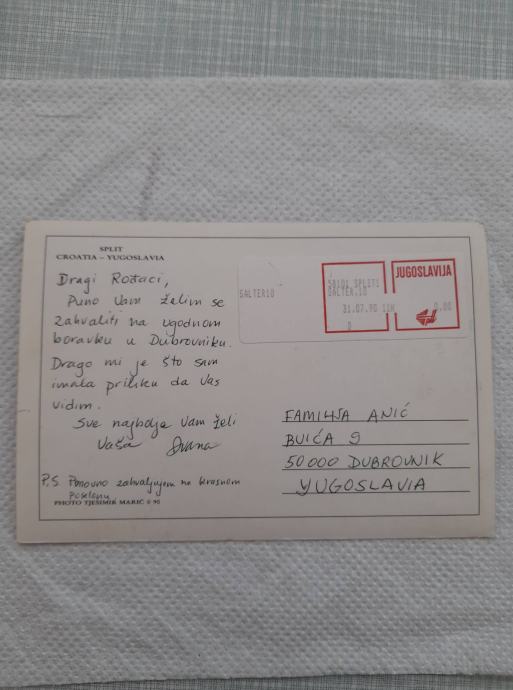 SPLIT
CROATIA – YUGOSLAVIA
Dragi Rođaci,
Puno Vam želim se
zahvaliti na ugodnom
boravku u Dubrovniku.
Drago mi je što sam
imala priliku da Vas
vidim.
Sve najbolje Vam želi
Vaša Ivana
P.S. Ponovno zahvaljujem na krasnom
poslonu
PHOTO TJEŠIMIR MARIĆ © 90
SALTER10
58101 SPLIT1
SALTER.10
31.07.90
0
JUGOSLAVIJA
0.00
FAMILIJA ANIĆ
BUIĆA 9
50000 DUBROVNIK
YUGOSLAVIA